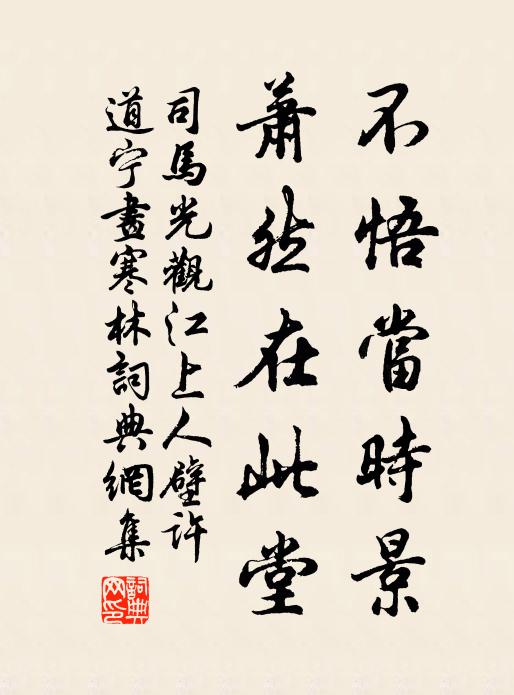 不悟當時景
蕭然在此堂
司馬光觀江上人壁許
道宁畫寒林詞典網集
詞典网印